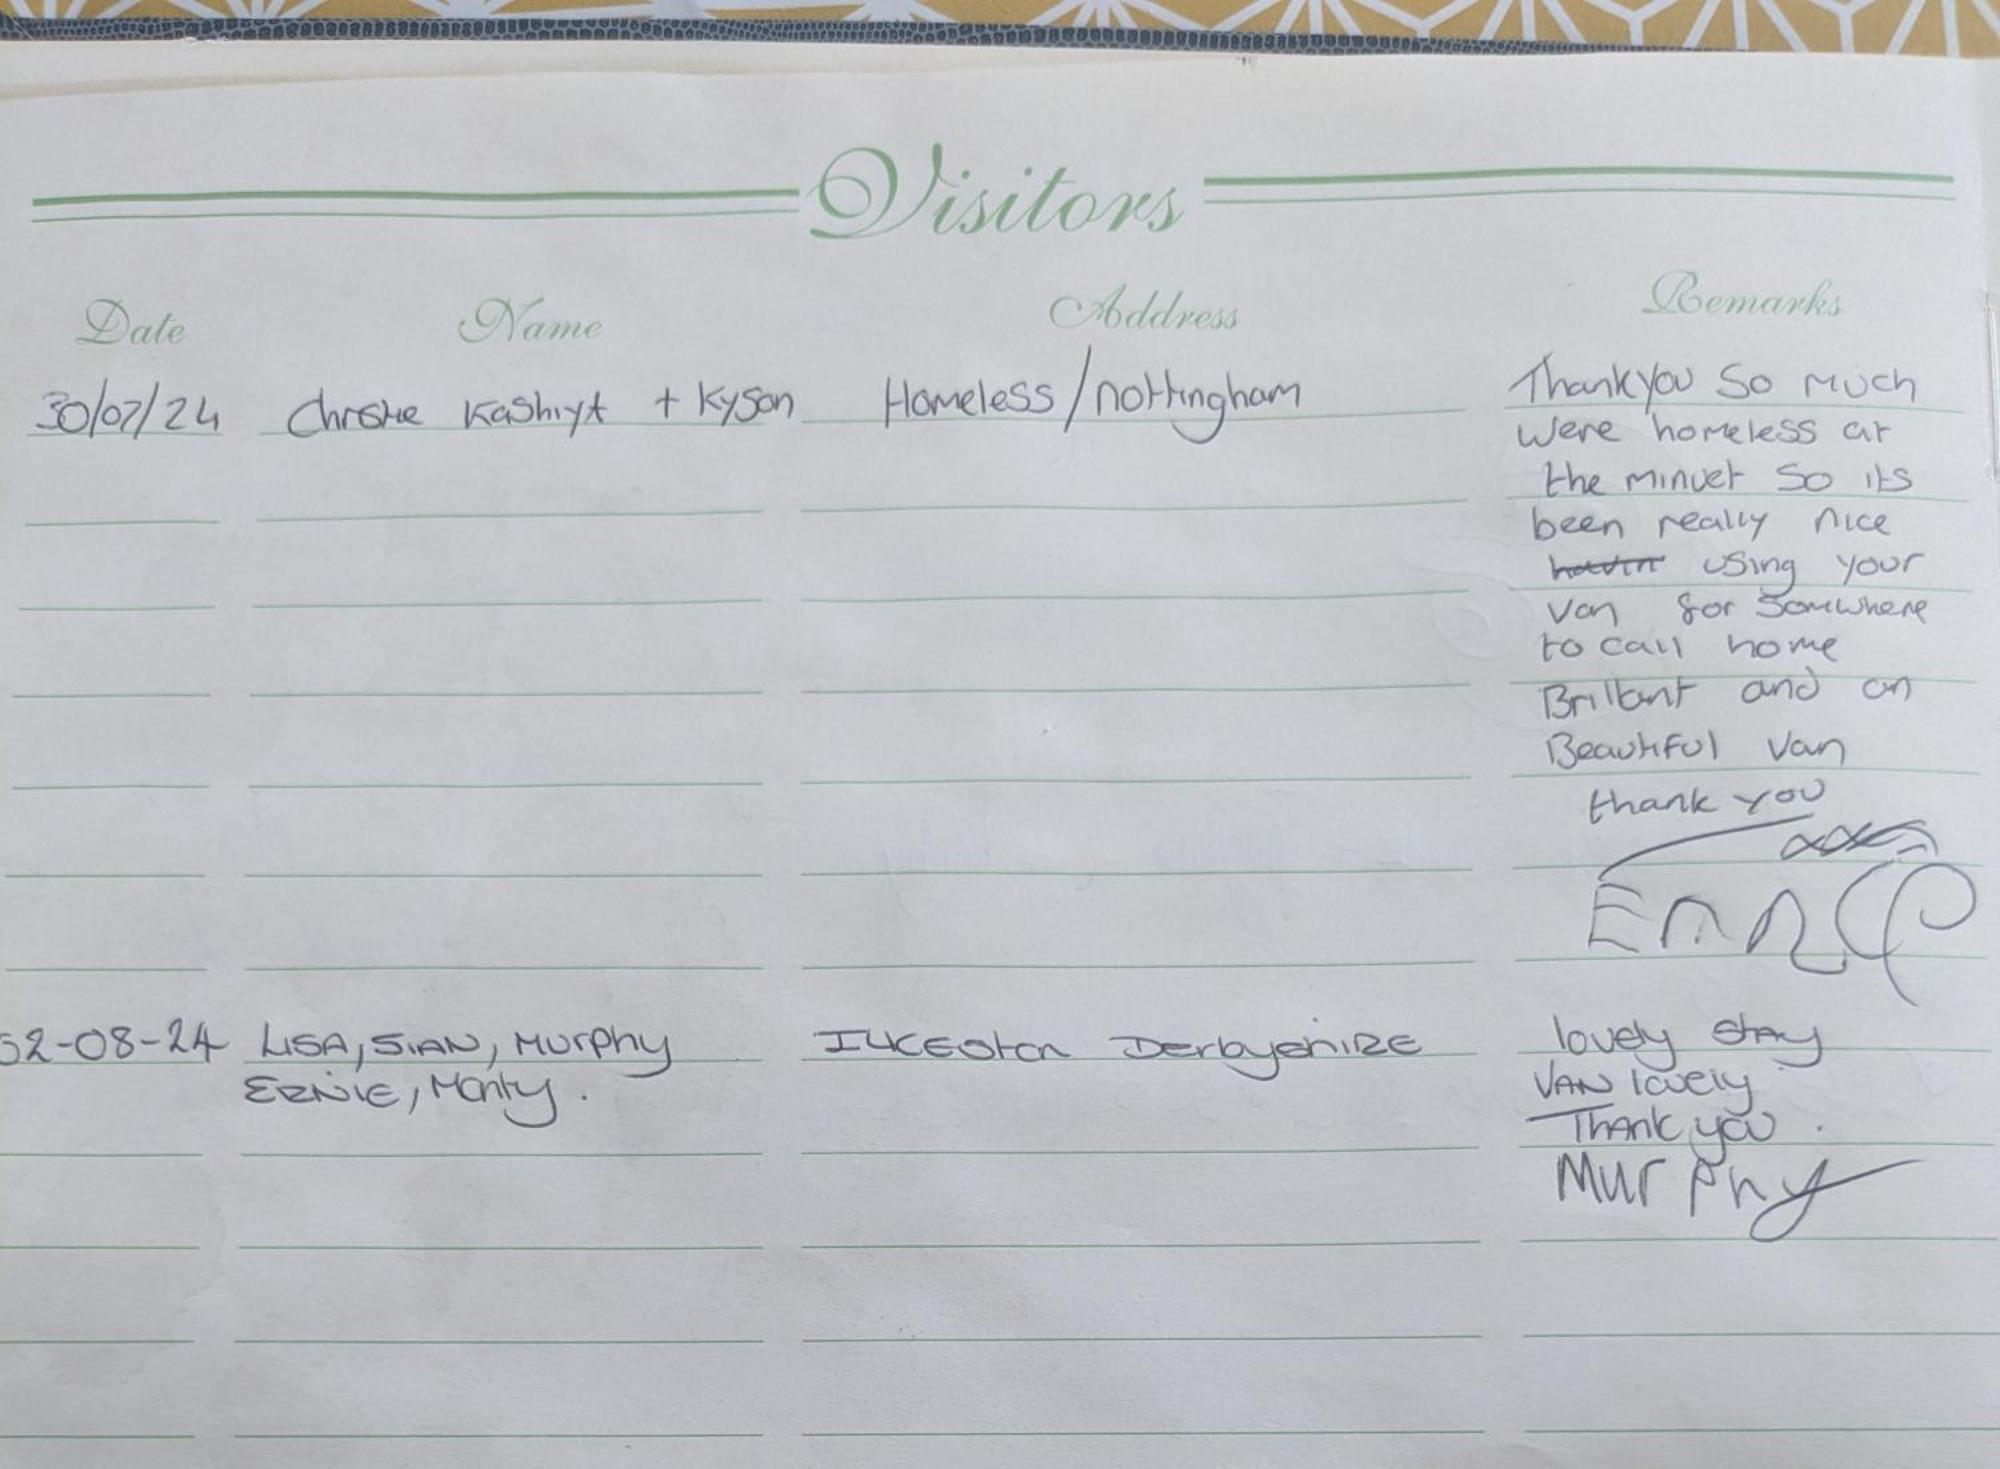 Visitors
Date Name Address Remarks
30/07/24 Christie Kashiyt + Kyson Homeless/nottingham Thankyou So Much
Were homeless at
the minuet So its
been really nice
using your
van for Somwhere
to call home
Brillant and an
Beautiful Van
thank you
02-08-24 LISA, SIAN, Murphy ILKESton DerbyshIRE lovely stay
ERNIE, Monty. VAN lovely
Thank you.
Murphy